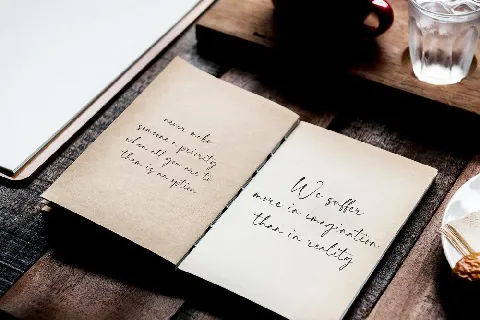 never make
someone a priority
when all you are to
them is an option
We suffer
more in imagination
than in reality